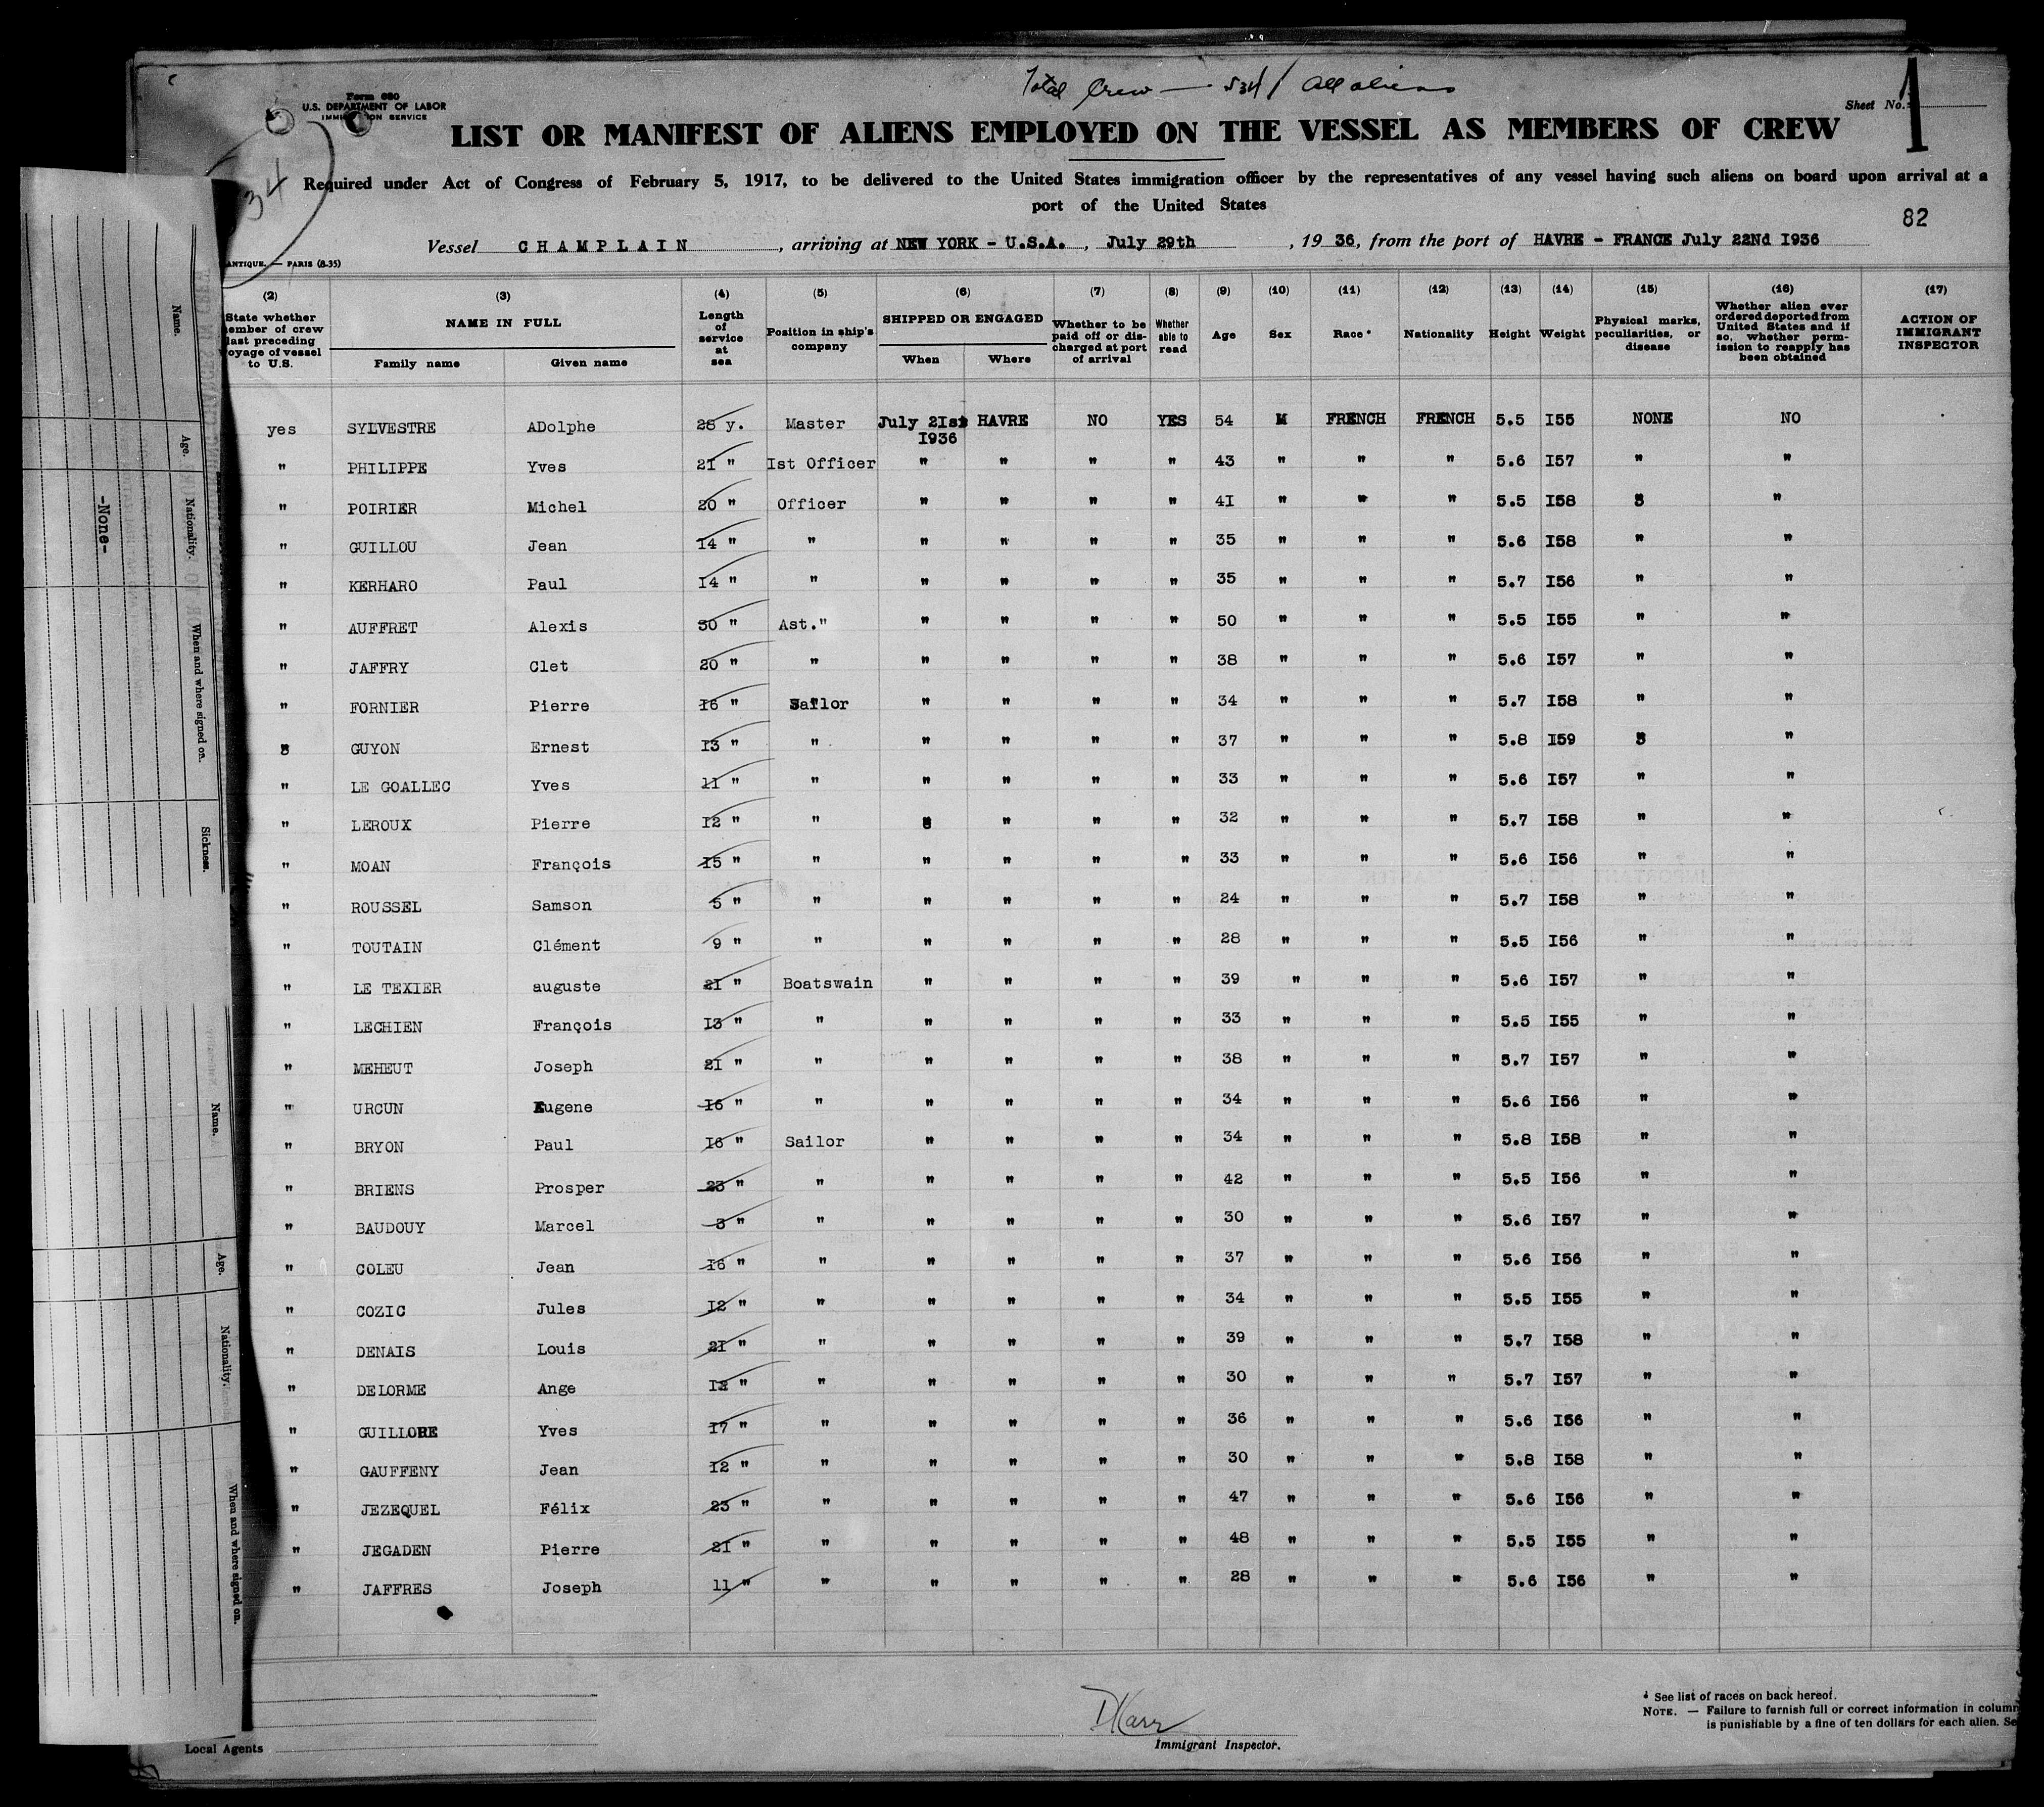 Total Crew — 534 / All aliens
Form 680
U.S. DEPARTMENT OF LABOR
IMMIGRATION SERVICE
Sheet No. 1
34
LIST OR MANIFEST OF ALIENS EMPLOYED ON THE VESSEL AS MEMBERS OF CREW
Required under Act of Congress of February 5, 1917, to be delivered to the United States immigration officer by the representatives of any vessel having such aliens on board upon arrival at a
port of the United States
82
Vessel CHAMPLAIN, arriving at NEW YORK - U.S.A., July 29th, 19 36, from the port of HAVRE - FRANCE July 22Nd I936
ANTIQUE. — PARIS (8-35)
(2) (3) (4) (5) (6) (7) (8) (9) (10) (11) (12) (13) (14) (15) (16) (17)
State whether member of crew last preceding voyage of vessel to U.S. | NAME IN FULL Family name Given name | Length of service at sea | Position in ship's company | SHIPPED OR ENGAGED When Where | Whether to be paid off or discharged at port of arrival | Whether able to read | Age | Sex | Race * | Nationality | Height | Weight | Physical marks, peculiarities, or disease | Whether alien ever ordered deported from United States and if so, whether permission to reapply has been obtained | ACTION OF IMMIGRANT INSPECTOR
yes SYLVESTRE ADolphe 28 y. Master July 2Ist I936 HAVRE NO YES 54 M FRENCH FRENCH 5.5 I55 NONE NO
" PHILIPPE Yves 2I " Ist Officer " " " " 43 " " " 5.6 I57 " "
" POIRIER Michel 20 " Officer " " " " 4I " " " 5.5 I58 " "
" GUILLOU Jean I4 " " " " " " 35 " " " 5.6 I58 " "
" KERHARO Paul I4 " " " " " " 35 " " " 5.7 I56 " "
" AUFFRET Alexis 30 " Ast." " " " " 50 " " " 5.5 I55 " "
" JAFFRY Clet 20 " " " " " " 38 " " " 5.6 I57 " "
" FORNIER Pierre I6 " Sailor " " " " 34 " " " 5.7 I58 " "
" GUYON Ernest I3 " " " " " " 37 " " " 5.8 I59 " "
" LE GOALLEC Yves 11 " " " " " " 33 " " " 5.6 I57 " "
" LEROUX Pierre I2 " " " " " " 32 " " " 5.7 I58 " "
" MOAN François I5 " " " " " " 33 " " " 5.6 I56 " "
" ROUSSEL Samson 5 " " " " " " 24 " " " 5.7 I58 " "
" TOUTAIN Clément 9 " " " " " " 28 " " " 5.5 I56 " "
" LE TEXIER auguste 2I " Boatswain " " " " 39 " " " 5.6 I57 " "
" LECHIEN François I3 " " " " " " 33 " " " 5.5 I55 " "
" MEHEUT Joseph 2I " " " " " " 38 " " " 5.7 I57 " "
" URCUN Eugene I6 " " " " " " 34 " " " 5.6 I56 " "
" BRYON Paul I6 " Sailor " " " " 34 " " " 5.8 I58 " "
" BRIENS Prosper 23 " " " " " " 42 " " " 5.5 I56 " "
" BAUDOUY Marcel 3 " " " " " " 30 " " " 5.6 I57 " "
" COLEU Jean I6 " " " " " " 37 " " " 5.6 I56 " "
" COZIC Jules I2 " " " " " " 34 " " " 5.5 I55 " "
" DENAIS Louis 2I " " " " " " 39 " " " 5.7 I58 " "
" DELORME Ange I2 " " " " " " 30 " " " 5.7 I57 " "
" GUILLORE Yves I7 " " " " " " 36 " " " 5.6 I56 " "
" GAUFFENY Jean I2 " " " " " " 30 " " " 5.8 I58 " "
" JEZEQUEL Félix 23 " " " " " " 47 " " " 5.6 I56 " "
" JEGADEN Pierre 2I " " " " " " 48 " " " 5.5 I55 " "
" JAFFRES Joseph 11 " " " " " " 28 " " " 5.6 I56 " "
Name.
Age.
Nationality.
When and where signed on.
Sickness.
-None-
Name.
Age.
Nationality.
When and where signed on.
* See list of races on back hereof.
NOTE. — Failure to furnish full or correct information in column
is punishable by a fine of ten dollars for each alien. Se
DKarr
Local Agents
Immigrant Inspector.